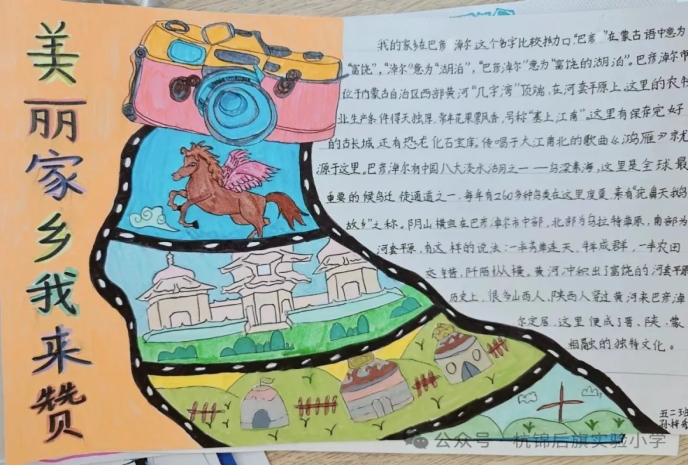 美丽家乡我来赞
我的家乡在巴彦淖尔,这个名字比较拗口,"巴彦"在蒙古语中意为
"富饶","淖尔"意为"湖泊","巴彦淖尔"意为"富饶的湖泊"。巴彦淖尔市
位于内蒙古自治区西部黄河"几字湾"顶端,在河套平原上,这里的农牧
业生产条件得天独厚,常年花果飘香,号称"塞上江南"。这里有保存完好
的古长城,还有恐龙化石宝库。传唱于大江南北的歌曲《鸿雁》就
源于这里。巴彦淖尔有中国八大淡水湖之一——乌梁素海,这里是全球最
重要的候鸟迁徙通道之一,每年有260多种鸟类在这里度夏,素有"
故乡"之称。阴山横亘在巴彦淖尔市中部,北部为乌拉特草原,南部为
河套平原。有这样的说法:一半青草连天,牛羊成群,一半农田
交错,阡陌纵横。黄河冲积出了富饶的河套平原
历史上,很多山西人、陕西人穿过黄河来巴彦淖
尔定居,这里便成了晋、陕、蒙
相融的独特文化。
五二班
公众号 杭锦后旗实验小学